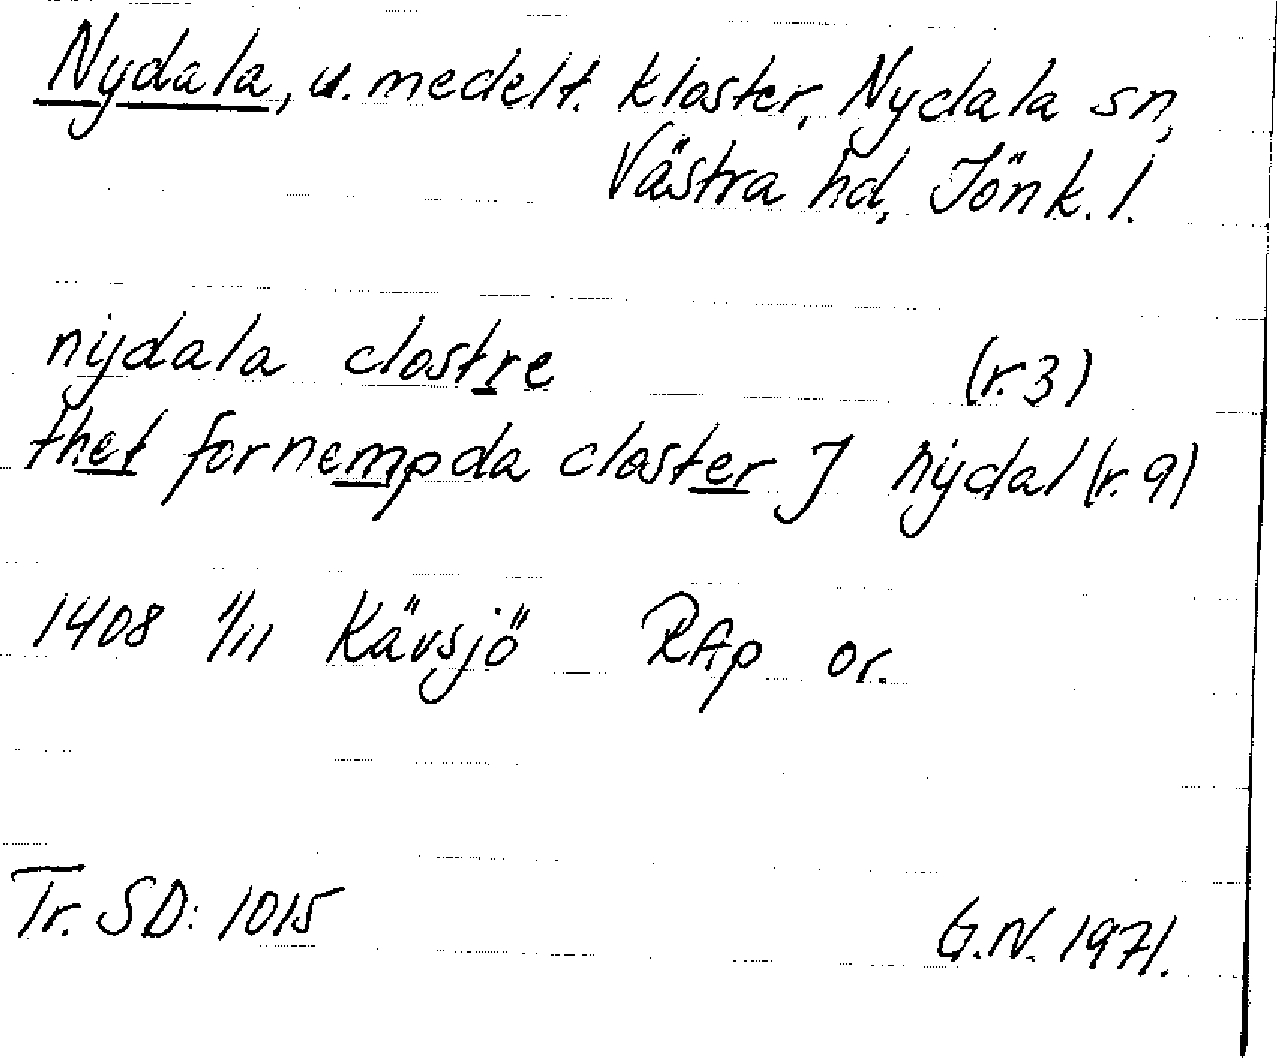 Nydala, u. medelt. kloster, Nydala sn,
Västra hd, Jönk. l.
nÿdala clostre (r. 3)
thet fornempda closter J nÿdal (r. 9)
1408 1/11 Kävsjö RAp or.
Tr. SD: 1015 G.N. 1971.